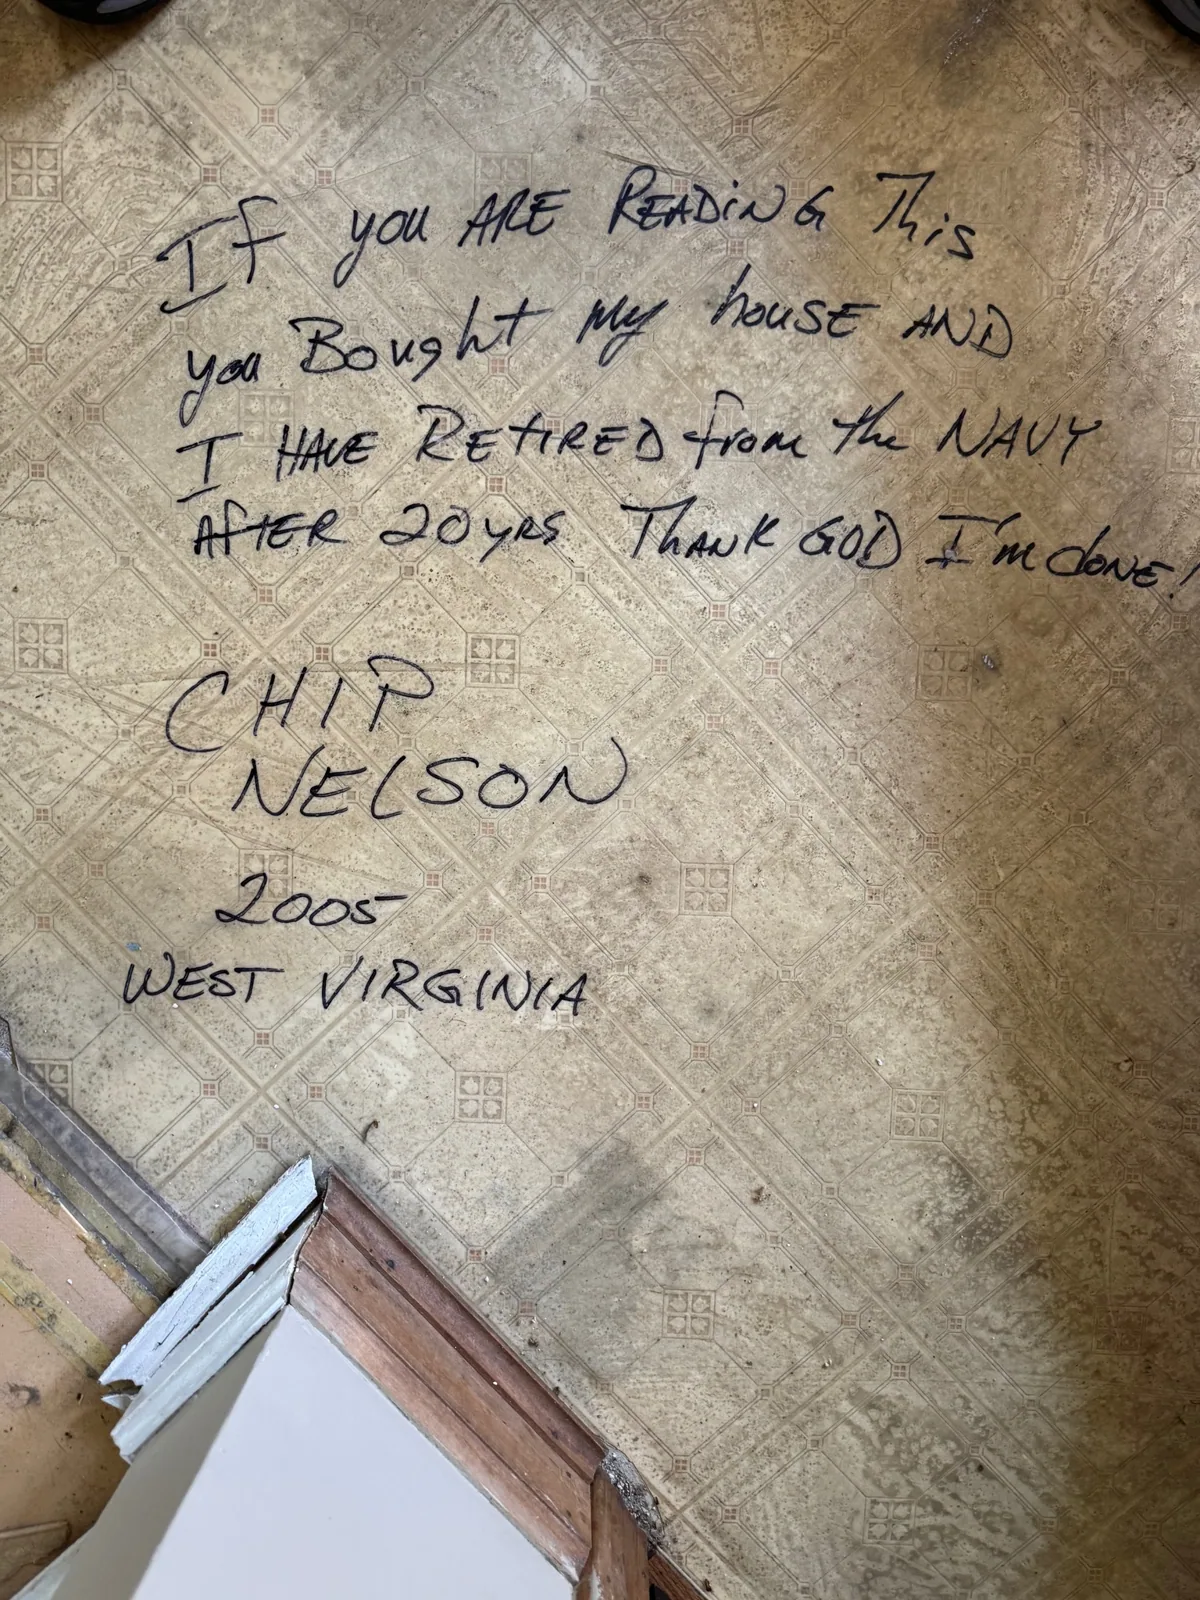 If you ARE READiNG This
you Bought My house AND
I HAVE RETIRED from the NAVY
AfTER 20 yRS THANK GOD I'm doNE!
CHIP
NELSON
2005
WEST VIRGINIA